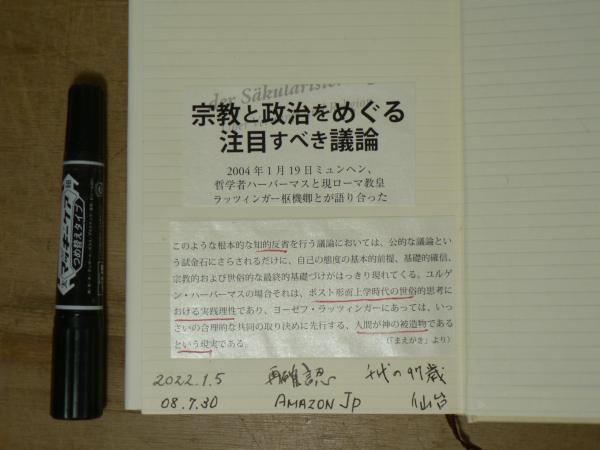 der Säkularisier
宗教と政治をめぐる
注目すべき議論
2004年1月19日ミュンヘン、
哲学者ハーバーマスと現ローマ教皇
ラッツィンガー枢機卿とが語り合った
このような根本的な知的反省を行う議論においては、公的な議論とい
う試金石にさらされるだけに、自己の態度の基本的前提、基礎的確信、
宗教的および世俗的な最終的基礎づけがはっきり現れてくる。ユルゲ
ン・ハーバーマスの場合それは、ポスト形而上学時代の世俗的思考に
おける実践理性であり、ヨーゼフ・ラッツィンガーにあっては、いっ
さいの合理的な共同の取り決めに先行する、人間が神の被造物である
という現実である。（「まえがき」より）
2022.1.5 再確認 の97歳
08.7.30 AMAZON JP 仙台
マッキーケア
つめ替えタイプ